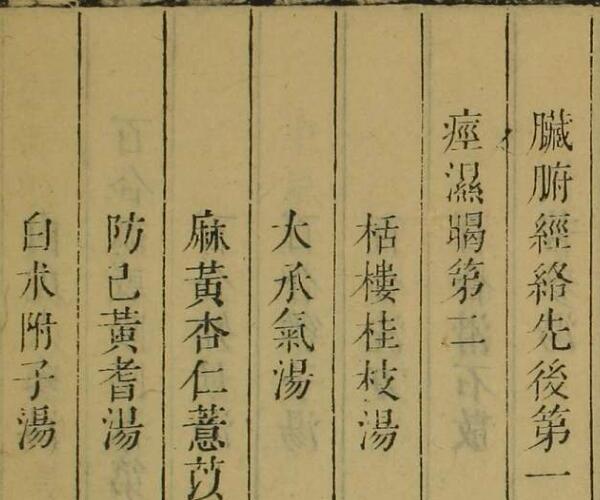 臟腑經絡先後第一
痓濕暍第二
栝樓桂枝湯
大承氣湯
麻黃杏仁薏苡
防己黃耆湯
白朮附子湯